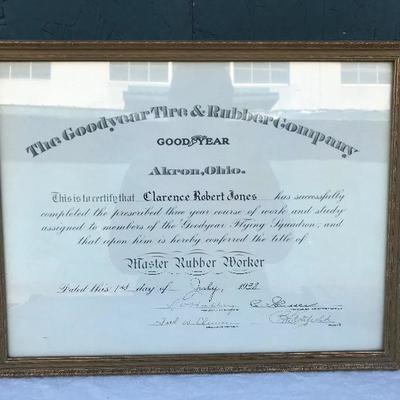 The Goodyear Tire & Rubber Company
GOODYEAR
Akron, Ohio.
This is to certify that Clarence Robert Jones has successfully
completed the prescribed three year course of work and study
assigned to members of the Goodyear Flying Squadron; and
that upon him is hereby conferred the title of
Master Rubber Worker
Dated this 1st day of July, 1928